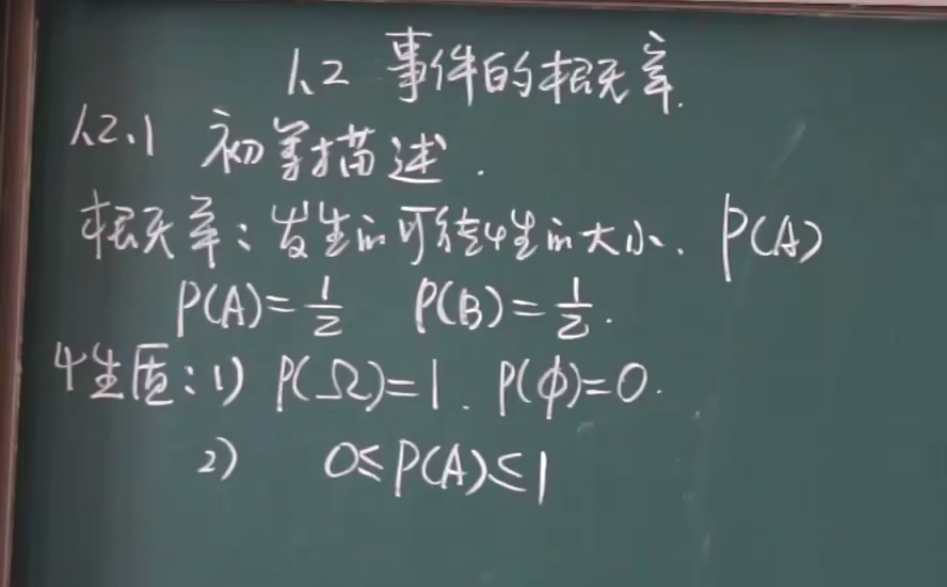 1.2 事件的概率.
1.2.1 初等描述.
概率:发生的可能性的大小. P(A)
P(A)=1/2 P(B)=1/2.
性质:1) P(Ω)=1. P(φ)=0.
2) 0≤P(A)≤1